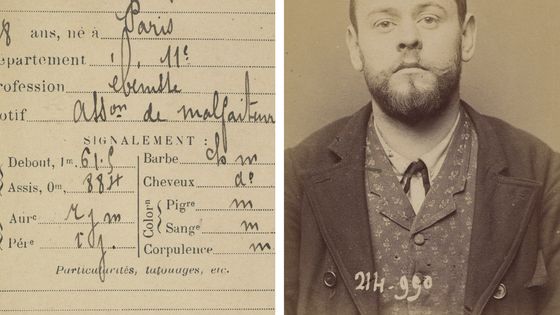 8 ans, né à Paris
épartement 11e
rofession ébéniste
otif Asson de malfaiteur
SIGNALEMENT :
Debout, 1m, 61.5
Assis, 0m, 884
Aure r j m
Père v j.
Barbe ch m
Cheveux do
Colorn
Pigre m
Sange m
Corpulence m
Particularités, tatouages, etc.
214-990